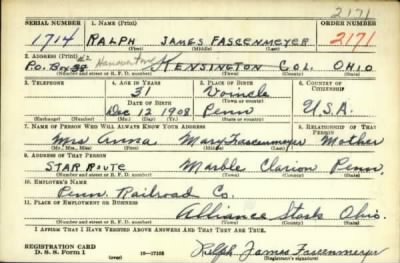 2171
SERIAL NUMBER 1. NAME (Print) ORDER NUMBER
1714 RALPH JAMES FASCENMEYER 2171
(First) (Middle) (Last)
2. ADDRESS (Print)
P.O. Box Hanoverton KENSINGTON COL. OHIO
(Number and street or R. F. D. number) (Town) (County) (State)
3. TELEPHONE 4. AGE IN YEARS 5. PLACE OF BIRTH 6. COUNTRY OF CITIZENSHIP
31 Vowinckle
DATE OF BIRTH (Town or county)
Dec 12 1908 Penn U.S.A.
(Exchange) (Number) (Mo.) (Day) (Yr.) (State or country)
7. NAME OF PERSON WHO WILL ALWAYS KNOW YOUR ADDRESS 8. RELATIONSHIP OF THAT PERSON
Mrs Anna Mary Fascenmeyer Mother
(Mr., Mrs., Miss) (First) (Middle) (Last)
9. ADDRESS OF THAT PERSON
STAR ROUTE Marble Clarion Penn.
(Number and street or R. F. D. number) (Town) (County) (State)
10. EMPLOYER'S NAME
Penn. Railroad Co.
11. PLACE OF EMPLOYMENT OR BUSINESS
Alliance Stark Ohio.
(Number and street or R. F. D. number) (Town) (County) (State)
I AFFIRM THAT I HAVE VERIFIED ABOVE ANSWERS AND THAT THEY ARE TRUE.
REGISTRATION CARD
D. S. S. Form 1 16—17105 Ralph James Fascenmeyer
(Registrant's signature)